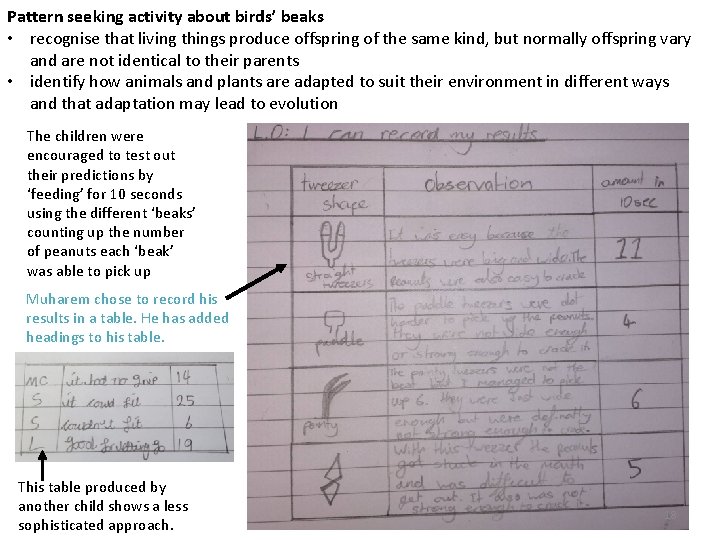 Pattern seeking activity about birds’ beaks
• recognise that living things produce offspring of the same kind, but normally offspring vary
and are not identical to their parents
• identify how animals and plants are adapted to suit their environment in different ways
and that adaptation may lead to evolution
The children were
encouraged to test out
their predictions by
‘feeding’ for 10 seconds
using the different ‘beaks’
counting up the number
of peanuts each ‘beak’
was able to pick up
Muharem chose to record his
results in a table. He has added
headings to his table.
MC it had no give 14
S it could fit 25
S couldn't fit 6
L good for 19
This table produced by
another child shows a less
sophisticated approach.
L.O: I can record my results
tweezer shape
observation
amount in
10sec
straight tweezers
It was easy because the
tweezers were long and wide. The
Peanuts were also easy to crack
11
paddle
The paddle tweezers were
harder to pick up the peanuts.
they were not wide enough
or strong enough to crack it.
4
pointy
The pointy tweezers were not the
best but I managed to pick
up 6. they were just wide
enough but were
not strong enough to crack.
6
With this tweezer the peanuts
got stuck in the mouth
and was difficult to
get out. It also was not
strong enough to crack it.
5